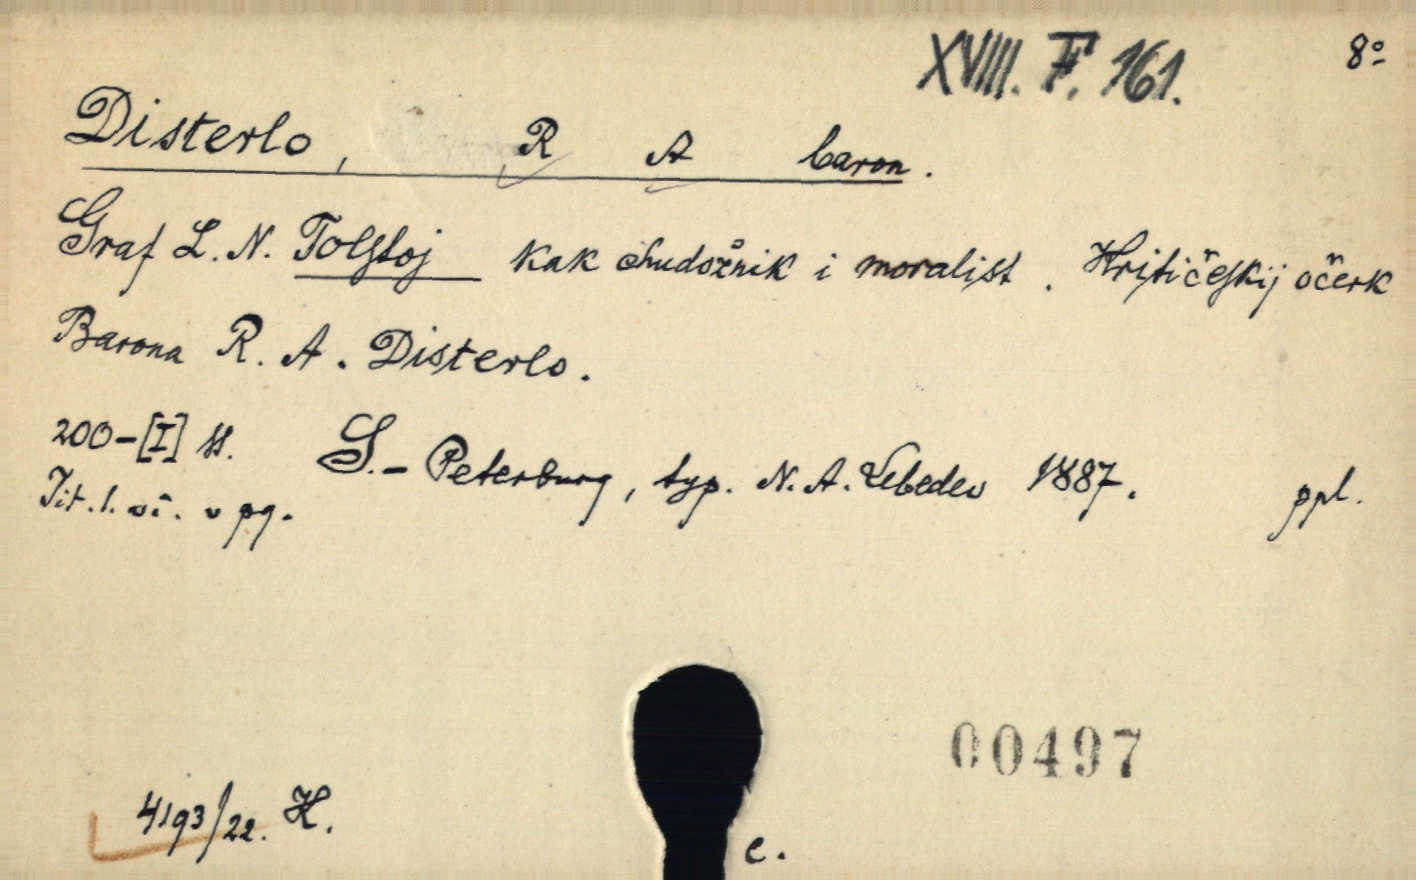 XVIII. F. 161. 8°
Disterlo, R A baron.
Graf L. N. Tolstoj kak chudožnik i moralist. Kritičeskij očerk
Barona R. A. Disterlo.
200-[I] ss. S.-Peterburg, typ. N. A. Lebedev 1887. ppl.
Tit. l. v pg.
00497
4193/22. H.
c.